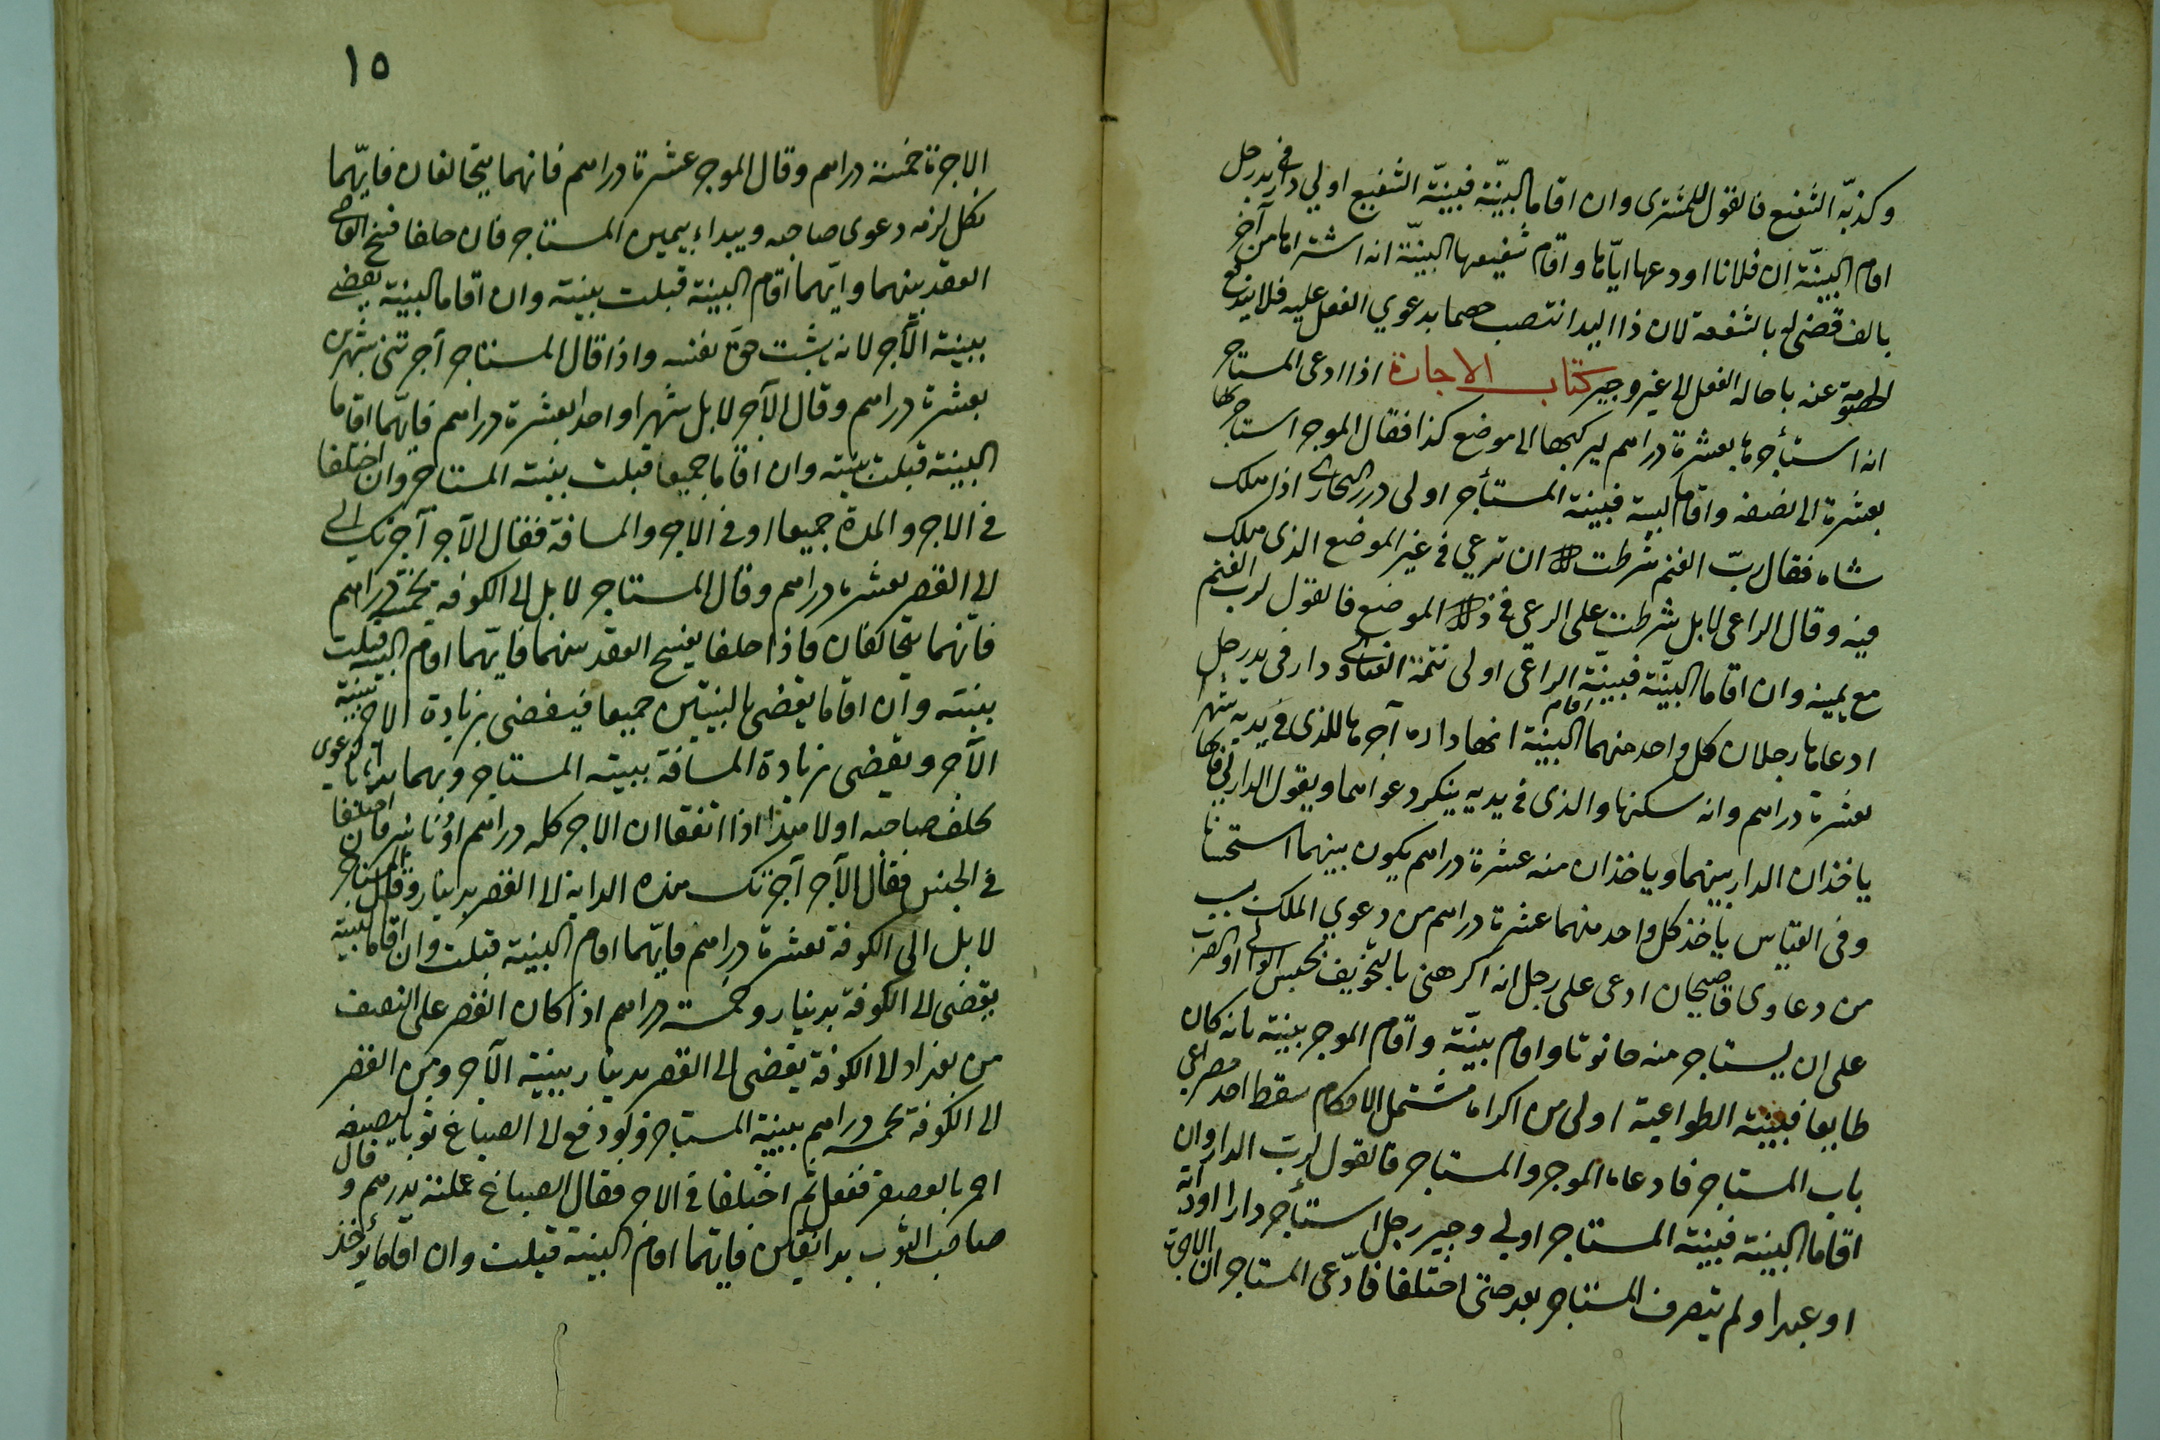 وكذبه الشفيع فالقول للمشترى وان اقاما البينة فبينة الشفيع اولي دار في يد رجل
اقام البينة ان فلانا اودعها اياها واقام شفيعها البينة انه اشتراها من آخر
بالف قضى له بالشفعة لان ذا اليد انتصب خصما بدعوي الفعل عليه فلا يندفع
الخصومة عنه باحاله الفعل الى غيره وجيز كتاب الاجارة اذا ادعى المستاجر
انه استأجرها بعشرة دراهم ليركبها الى موضع كذا فقال الموجر استاجرتها
بعشرة الى نصفه واقاما البينة فبينة المستأجر اولى درر البحار اذا هلك
شاه فقال رب الغنم شرطت لك ان ترعي في غير الموضع الذى هلك
فيه وقال الراعى لا بل شرطت على الرعي في ذلك الموضع فالقول لرب الغنم
مع يمينه وان اقاما البينة فبينة الراعى اولى تتمة الفتاوى دار فى يد رجل
ادعاها رجلان كل واحد منهما اقام البينة انها داره آجرها للذى في يديه شهرا
بعشرة دراهم وانه سكنها والذى في يديه ينكر دعواهما ويقول الدار لي فانهما
ياخذان الدار بينهما وياخذان منه عشرة دراهم يكون بينهما استحسانا
وفى القياس ياخذ كل واحد منهما عشرة دراهم من دعوي الملك بسبب
من دعاوى قاضيخان ادعى على رجل انه اكرهنى بالتخويف بحبس الوالي او الضرب
على ان يستاجر منه حانوتا واقام بينة واقام الموجر بينة بانه كان
طايعا فبينة الطواعية اولى من اكراه مشتمل الاحكام سقط احد مصراعي
باب المستاجر فادعاه الموجر والمستاجر فالقول لرب الدار وان
اقاما البينة فبينة المستاجر اولي وجيز رجل استأجر دارا او دابة
او عبدا ولم يتصرف المستاجر بعد حتى اختلفا فادعى المستاجر ان الاجرة
١٥
الاجرة خمسة دراهم وقال الموجر عشرة دراهم فانهما يتحالفان فايهما
نكل لزمه دعوى صاحبه ويبداء بيمين المستاجر فان حلفا فسخ القاضى
العقد بينهما وايهما اقام البينة قبلت بينته وان اقاما البينة يقضى
ببينة الآجر لانه يثبت حق نفسه واذا قال المستاجر آجرتنى شهرين
بعشرة دراهم وقال الآجر لا بل شهرا واحدا بعشرة دراهم فايهما اقاما
البينة قبلت بينته وان اقاما جميعا قبلت بينة المستاجر وان اختلفا
في الاجر والمدة جميعا او في الاجر والمسافة فقال الآجر آجرتك الى
الى القصر بعشرة دراهم وقال المستاجر لا بل الى الكوفه بخمسة دراهم
فانهما يتحالفان فاذا حلفا يفسخ العقد بينهما فايهما اقام البينة قبلت
بينته وان اقاما يقضى بالبينتين جميعا فيقضى بزيادة الاجر ببينة
الآجر ويقضى بزيادة المسافة ببينة المستاجر وبهما بداء بالدعوى
يحلف صاحبه اولا هذا اذا اتفقا ان الاجر كله دراهم او دنانير فان اختلفا
في الجنس فقال الآجر آجرتك هذه الدابة الى القصر بدينار وقال المستاجر
لا بل الى الكوفة بعشرة دراهم فايهما اقام البينة قبلت وان اقاما البينة
يقضى الى الكوفة بدينار وخمسة دراهم اذا كان القصر على النصف
من بغداد الى الكوفة يقضى الى القصر بدينار ببينة الآجر ومن القصر
الى الكوفة بخمسة دراهم ببينة المستاجر ولو دفع الى الصباغ ثوبا ليصبغه
احمر بالعصفر ففعل ثم اختلفا في الاجر فقال الصباغ عملته بدرهم وقال
صاحب الثوب بدانقين فايهما اقام البينة قبلت وان اقاما يؤخذ